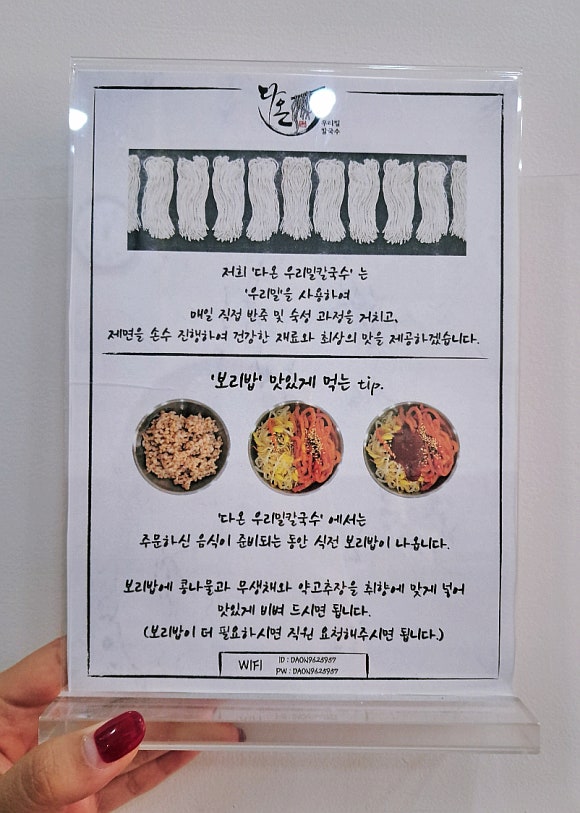 다온
우리밀
칼국수
저희 '다온 우리밀칼국수' 는
'우리밀'을 사용하여
매일 직접 반죽 및 숙성 과정을 거치고,
제면을 손수 진행하여 건강한 재료와 최상의 맛을 제공하겠습니다.
'보리밥' 맛있게 먹는 tip.
'다온 우리밀칼국수' 에서는
주문하신 음식이 준비되는 동안 식전 보리밥이 나옵니다.
보리밥에 콩나물과 무생채와 약고추장을 취향에 맞게 넣어
맛있게 비벼 드시면 됩니다.
(보리밥이 더 필요하시면 직원 요청해주시면 됩니다.)
WIFI
ID : DAON9625957
PW : DAON9625957